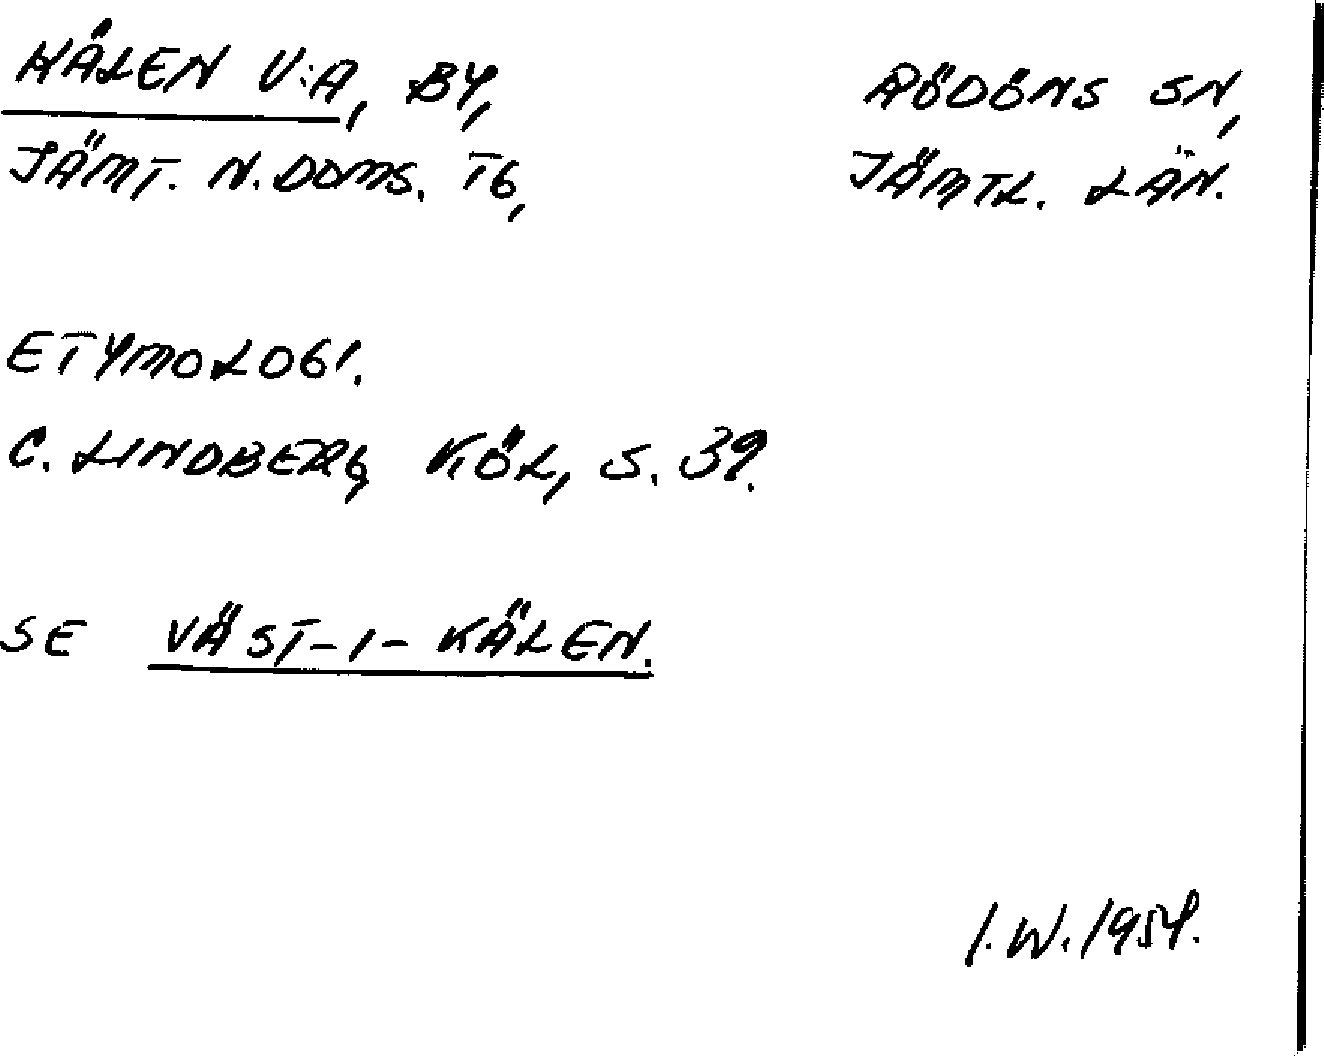 KÄLEN V:A, BY, RÖDÖNS SN,
JÄMT. N. DOMS. TG, JÄMTL. LÄN.
ETYMOLOGI.
C. LINDBERG, KÖL, S. 39.
SE VÄST-I-KÄLEN.
I.W. 1954.